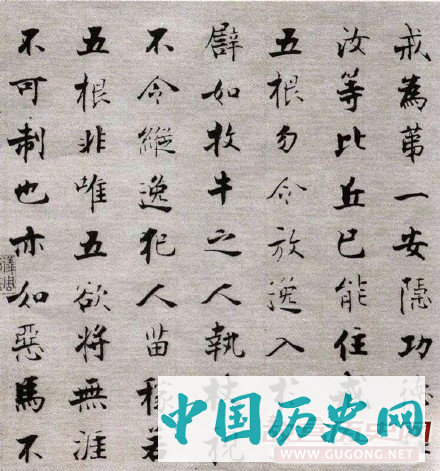 戒為第一安隱功
汝等比丘已能住戒
五根勿令放逸入
譬如牧牛之人執
不令縱逸犯人苗稼若
五根非唯五欲將無涯
不可制也亦如惡馬不
中国历史网
WWW.GUGONG.NET